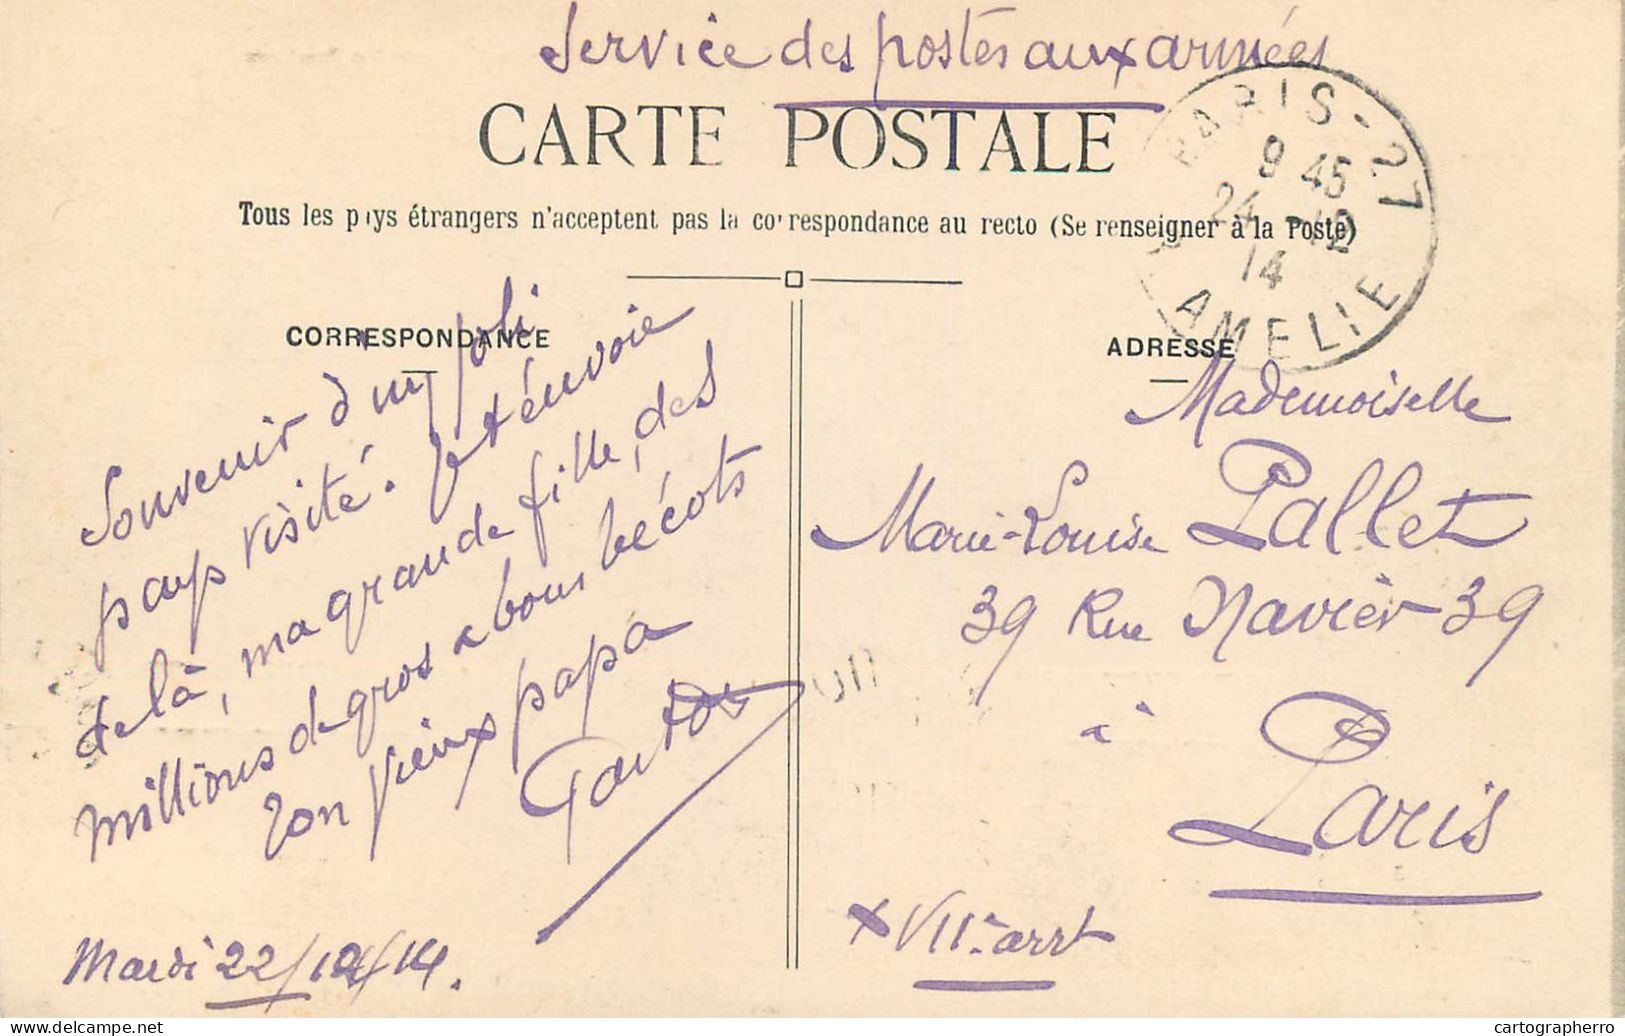 Service des postes aux armées
CARTE POSTALE
Tous les pays étrangers n'acceptent pas la correspondance au recto (Se renseigner à la Poste)
PARIS-27
9 45
24 -12
14
AMELIE
CORRESPONDANCE
Souvenir d'un joli
pays visité. Je t'envoie
de là, ma grande fille, des
millions de gros & bons bécots
Ton vieux papa
Mardi 22/12/14.
ADRESSE
Mademoiselle
Marie-Louise Pallet
39 Rue Navier 39
à
Paris
XVIIe arrt
delcampe.net
cartographerro